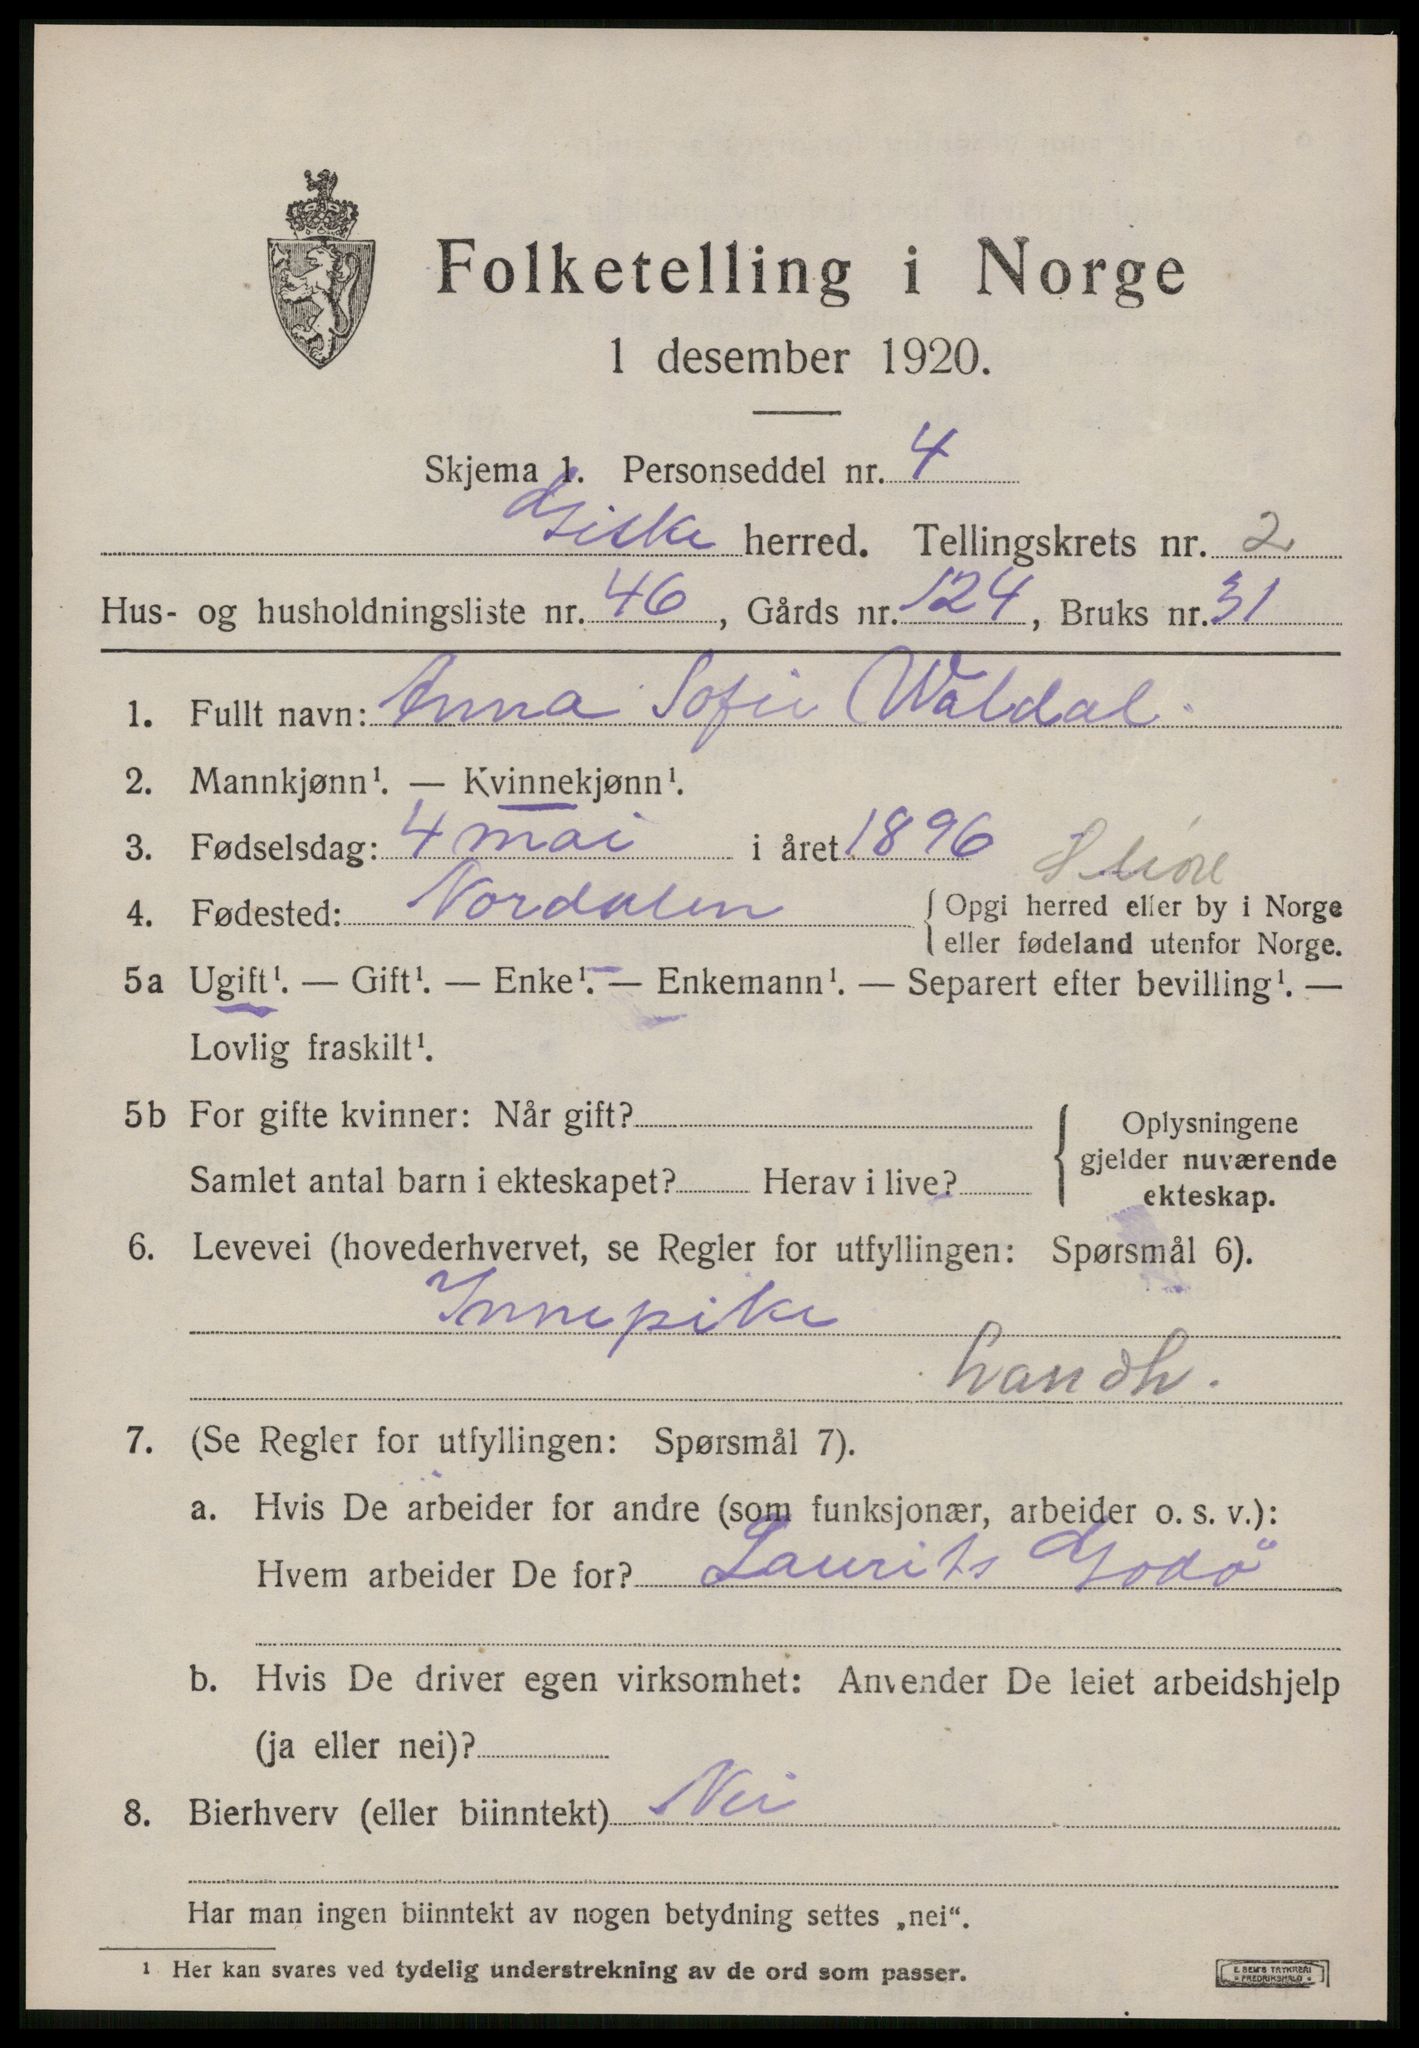 Folketelling i Norge
1 desember 1920.
Skjema 1. Personseddel nr. 4
Giske herred. Tellingskrets nr. 2
Hus- og husholdningsliste nr. 46, Gårds nr. 124, Bruks nr. 31
1. Fullt navn: Anna Sofie Waldal.
2. Mannkjønn¹. — Kvinnekjønn¹.
3. Fødselsdag: 4 mai i året 1896
Møre
4. Fødested: Nordalen { Opgi herred eller by i Norge
eller fødeland utenfor Norge.
5a Ugift¹. — Gift¹. — Enke¹. — Enkemann¹. — Separert efter bevilling¹. —
Lovlig fraskilt¹.
5b For gifte kvinner: Når gift?
Samlet antal barn i ekteskapet? Herav i live?
{ Oplysningene
gjelder nuværende
ekteskap.
6. Levevei (hovederhvervet, se Regler for utfyllingen: Spørsmål 6).
Innepike
landh.
7. (Se Regler for utfyllingen: Spørsmål 7).
a. Hvis De arbeider for andre (som funksjonær, arbeider o. s. v.):
Hvem arbeider De for? Laurits Godö
b. Hvis De driver egen virksomhet: Anvender De leiet arbeidshjelp
(ja eller nei)?
8. Bierhverv (eller biinntekt) Nei
Har man ingen biinntekt av nogen betydning settes „nei“.
¹ Her kan svares ved tydelig understrekning av de ord som passer.
E. SEM'S TRYKKERI
FREDRIKSHALD